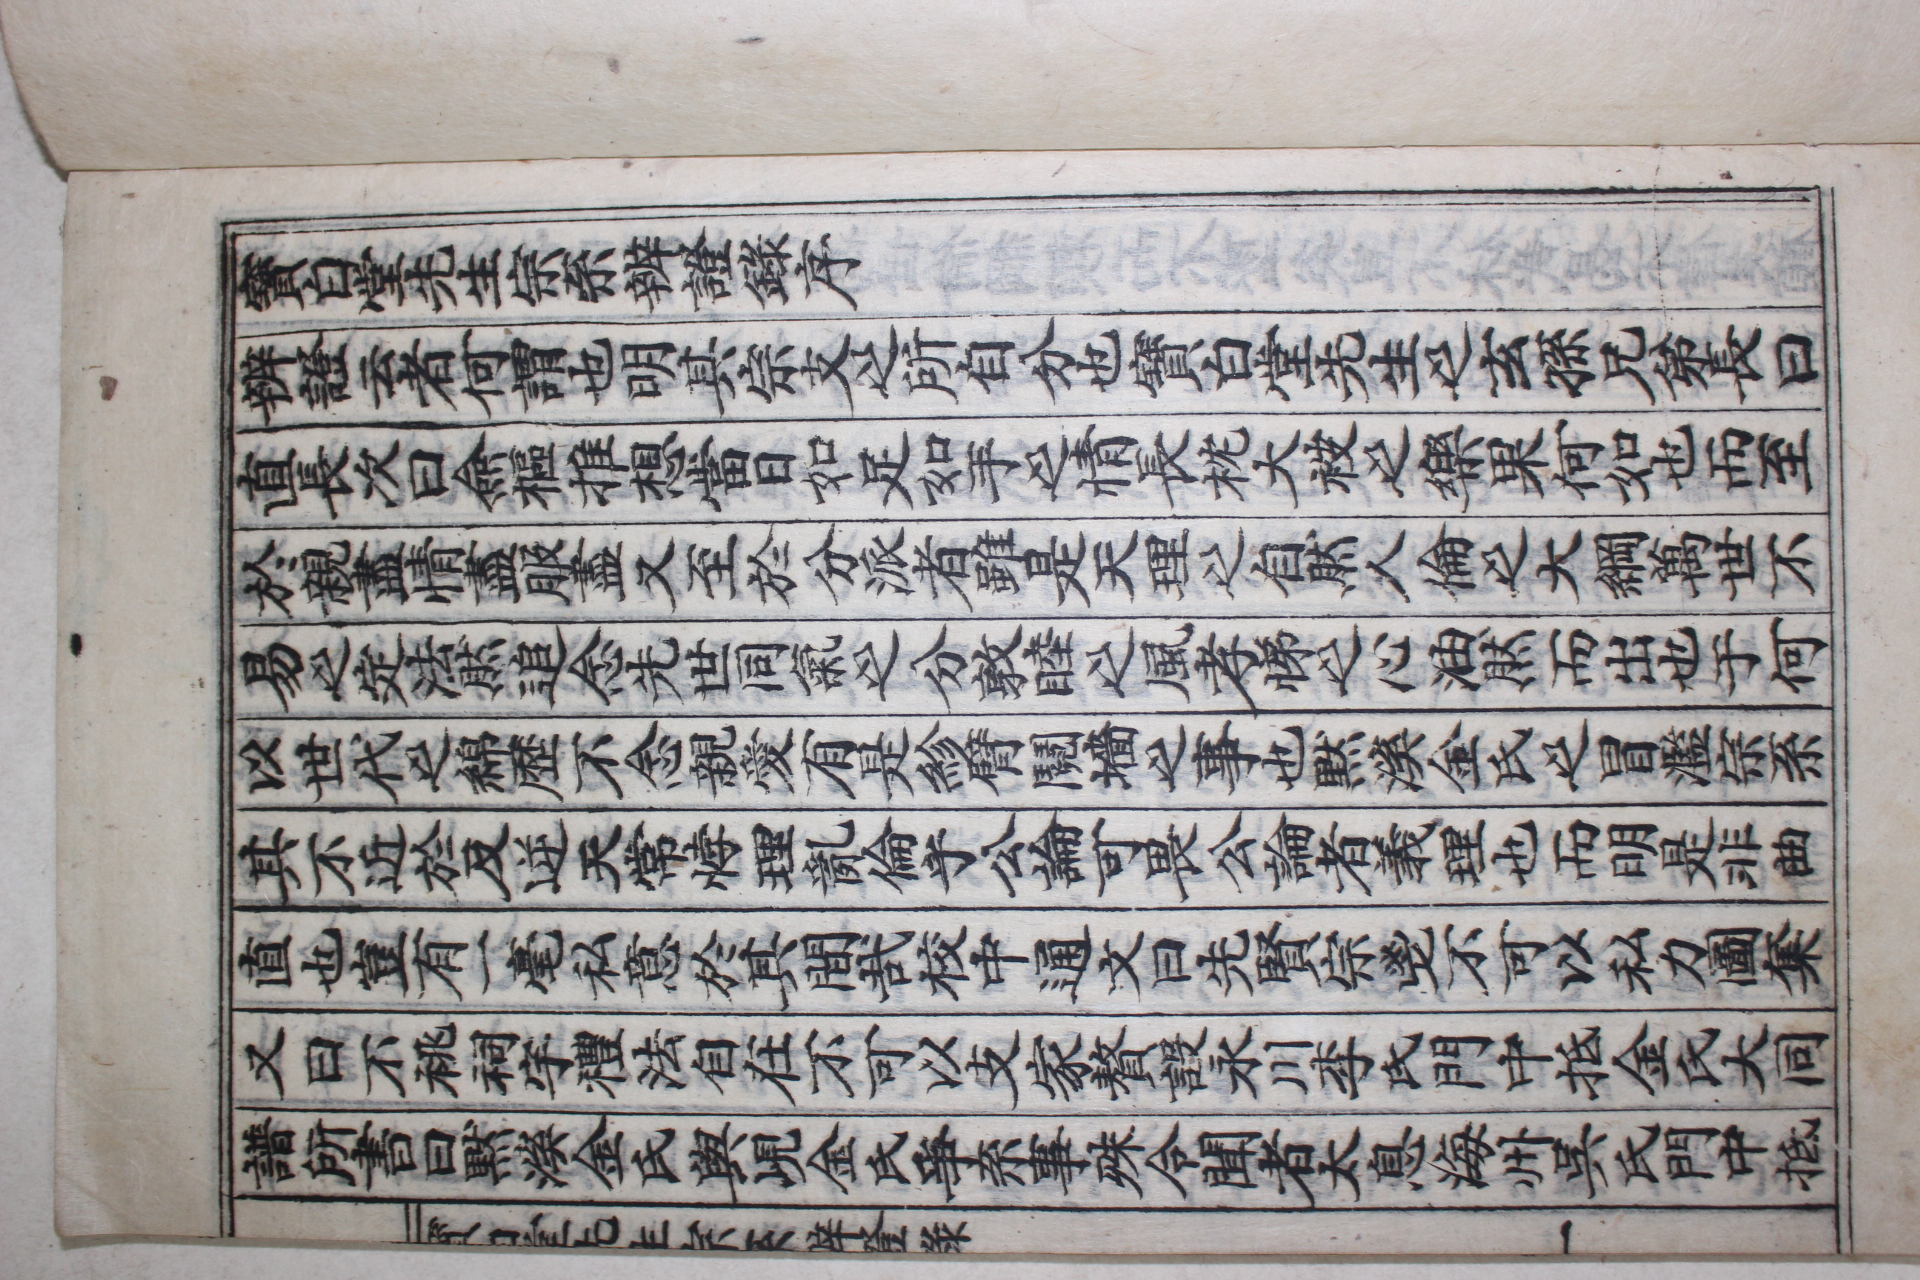 寶白堂先生宗系辨證錄序
辨證云者何謂也明其宗支之所自分也寶白堂先生之玄孫兄弟長曰
直長次曰僉樞推想當日如足如手之情長枕大被之樂果何如也而至
於親盡情盡服盡又至於分派者雖是天理之自然人倫之大綱萬世不
易之定法然追念先世同氣之分敦睦之風孝悌之心油然而出也于何
以世代之綿歷不念親愛有是紾臂鬩墻之事也默溪金氏之冒濫宗系
其不近於反逆天常悖理亂倫乎公論可畏公論者義理也而明是非曲
直也豈有一毫私意於其間哉校中通文曰先賢宗不可以私力圖集
又曰不祧祠宇禮法自在不可以支家替設永川李氏門中抵金氏大同
譜所書曰默溪金氏與峴金氏爭系事殊令聞者太息海州吳氏門中抵
寶白堂先生宗系辨證錄 一